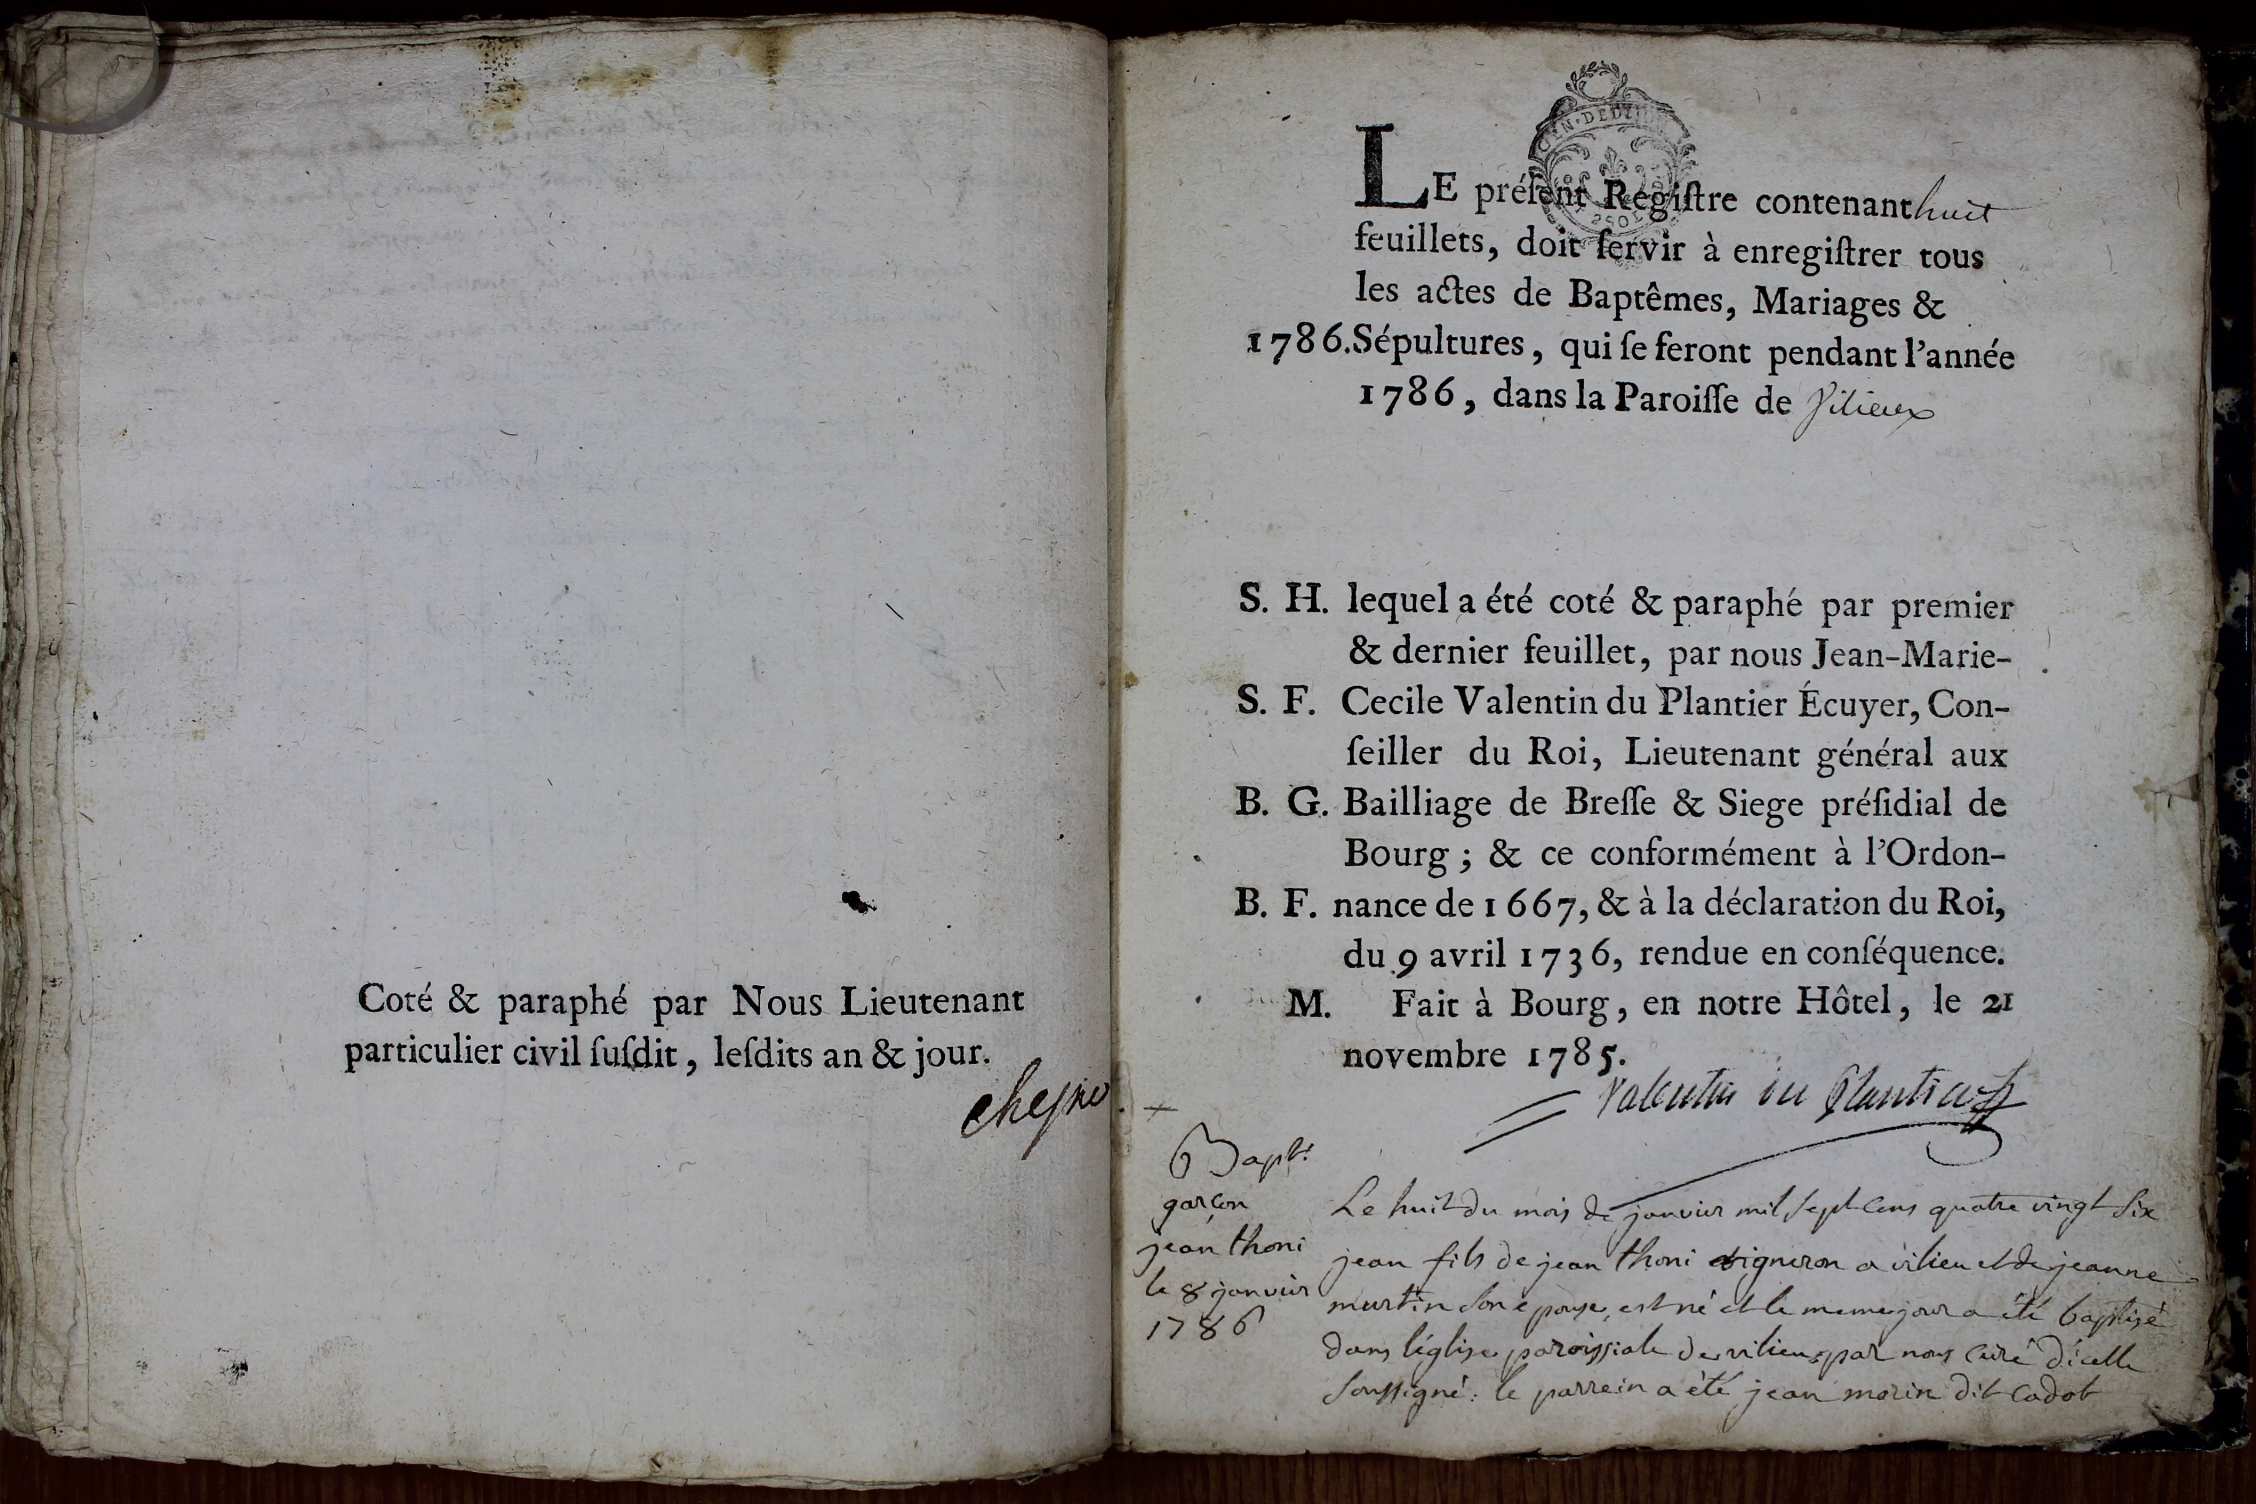 Coté & paraphé par Nous Lieutenant
particulier civil ſuſdit, leſdits an & jour.
GEN. DE DI
LE préſent Regiſtre contenant huit
feuillets, doit ſervir à enregiſtrer tous
les actes de Baptêmes, Mariages &
1786. Sépultures, qui ſe feront pendant l'année
1786, dans la Paroiſſe de Vilieux
S. H. lequel a été coté & paraphé par premier
& dernier feuillet, par nous Jean-Marie-
S. F. Cecile Valentin du Plantier Écuyer, Con-
ſeiller du Roi, Lieutenant général aux
B. G. Bailliage de Breſſe & Siege préſidial de
Bourg ; & ce conformément à l'Ordon-
B. F. nance de 1667, & à la déclaration du Roi,
du 9 avril 1736, rendue en conſéquence.
M. Fait à Bourg, en notre Hôtel, le 21
novembre 1785.
Valentin du Plantier
Bapt.
garçon
jean thoni
le 8 janvier
1786
Le huit du mois de janvier mil sept cens quatre vingt six
jean fils de jean thoni vigneron a vilieu et de jeanne
martin son epouse, est né et le meme jour a été baptisé
dans l'église paroissiale de vilieu par nous curé d'icelle
soussigné : le parrein a été jean morin dit cadot